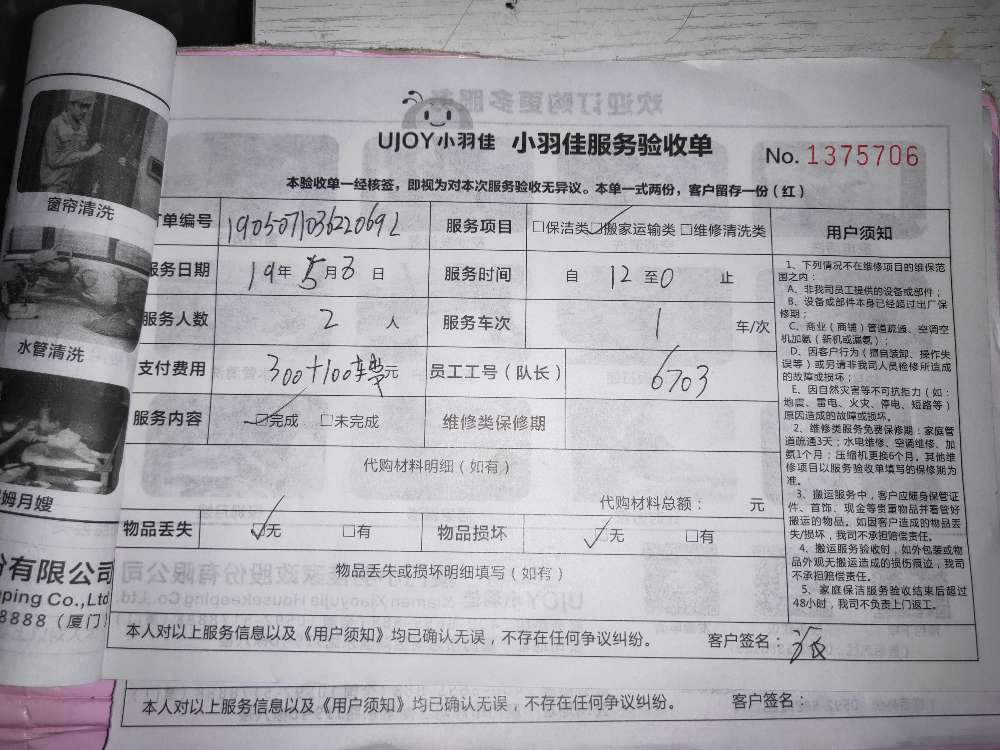 窗帘清洗
水管清洗
姆月嫂
份有限公司
ping Co.,Ltd
8888（厦门
欢迎订购更多服务
UJOY小羽佳 小羽佳服务验收单 No. 1375706
本验收单一经核签，即视为对本次服务验收无异议。本单一式两份，客户留存一份（红）
订单编号 1905071036220692 服务项目 □保洁类 ☑搬家运输类 □维修清洗类
服务日期 19年5月8日 服务时间 自 12 至 0 止
服务人数 2 人 服务车次 1 车/次
支付费用 300+100车费元 员工工号（队长） 6703
服务内容 ☑完成 □未完成 维修类保修期
代购材料明细（如有）
代购材料总额： 元
物品丢失 ☑无 □有 物品损坏 ☑无 □有
物品丢失或损坏明细填写（如有）
用户须知
1、下列情况不在维修项目的维保范
围之内：
A、非我司员工提供的设备或部件；
B、设备或部件本身已经超过出厂保
修期；
C、商业（商铺）管道疏通、空调空
机加氨（新机或漏氨）；
D、因客户行为（擅自装卸、操作失
误等）或另请非我司人员检修所造成
的故障或损坏；
E、因自然灾害等不可抗拒力（如：
地震、雷电、火灾、停电、短路等）
原因造成的故障或损坏。
2、维修类服务免费保修期：家庭管
道疏通3天；水电维修、空调维修、加
氨1个月；压缩机更换6个月。其他维
修项目以服务验收单填写的保修期为
准。
3、搬运服务中，客户应随身保管证
件、首饰、现金等贵重物品并看管好
搬运的物品。如因客户造成的物品丢
失/损坏，我司不承担赔偿责任。
4、搬运服务验收时，如外包装或物
品外观无搬运造成的损伤痕迹，我司
不承担赔偿责任。
5、家庭保洁服务验收结束后超过
48小时，我司不负责上门返工。
本人对以上服务信息以及《用户须知》均已确认无误，不存在任何争议纠纷。 客户签名：
本人对以上服务信息以及《用户须知》均已确认无误，不存在任何争议纠纷。 客户签名：